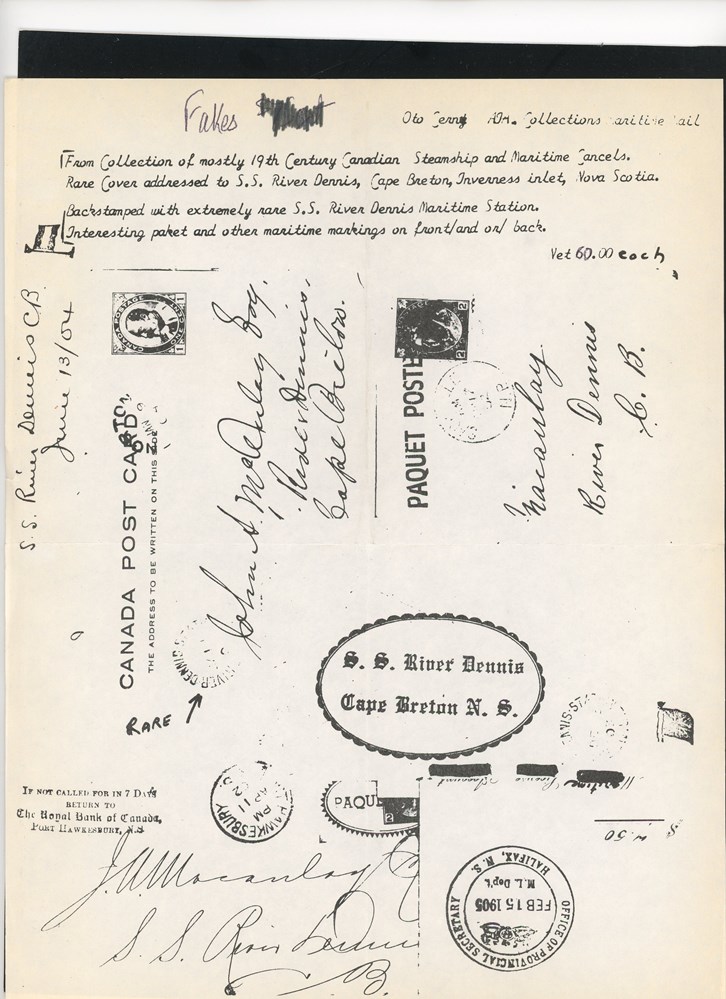 Fakes
Oto Collections
From Collection of mostly 19th Century Canadian Steamship and Maritime Cancels.
Rare Cover addressed to S.S. River Dennis, Cape Breton, Inverness inlet, Nova Scotia.
Backstamped with extremely rare S.S. River Dennis Maritime Station.
Interesting paket and other maritime markings on front/and or/ back.
Vet 60.00 each
S.S. River Dennis C.B.
June 13/04
CANADA POST CARD
THE ADDRESS TO BE WRITTEN ON THIS SIDE
CANADA POSTAGE
1 1
John A. McAulay Esq.
River Dennis,
Cape Breton.
RIVER DENNIS
RARE
2 2
PAQUET POSTE
Macaulay
River Dennis
C. B.
S. S. River Dennis
Cape Breton N. S.
NIS-ST
IF NOT CALLED FOR IN 7 DAYS
RETURN TO
The Royal Bank of Canada,
PORT HAWKESBURY, N.S
HAWKESBURY
AP 11
PAQUE
2
License
$ 4.50
J.A. Macaulay
S. S. River Dennis
B.
OFFICE OF PROVINCIAL SECRETARY
HALIFAX, N. S.
M. L. Dep't.
FEB 15 1905